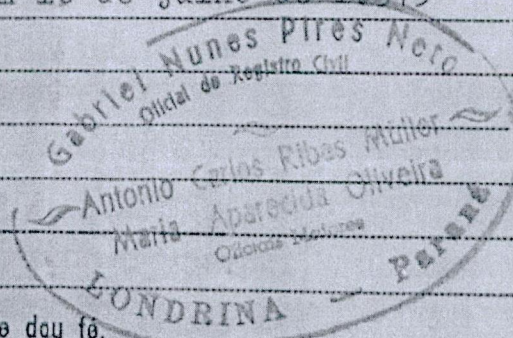 de julho de
Gabriel Nunes Pires Neto
Oficial do Registro Civil
Antonio Carlos Ribas Müller
Maria Aparecida Oliveira
Oficiais Maiores
LONDRINA — Paraná
e dou fé.